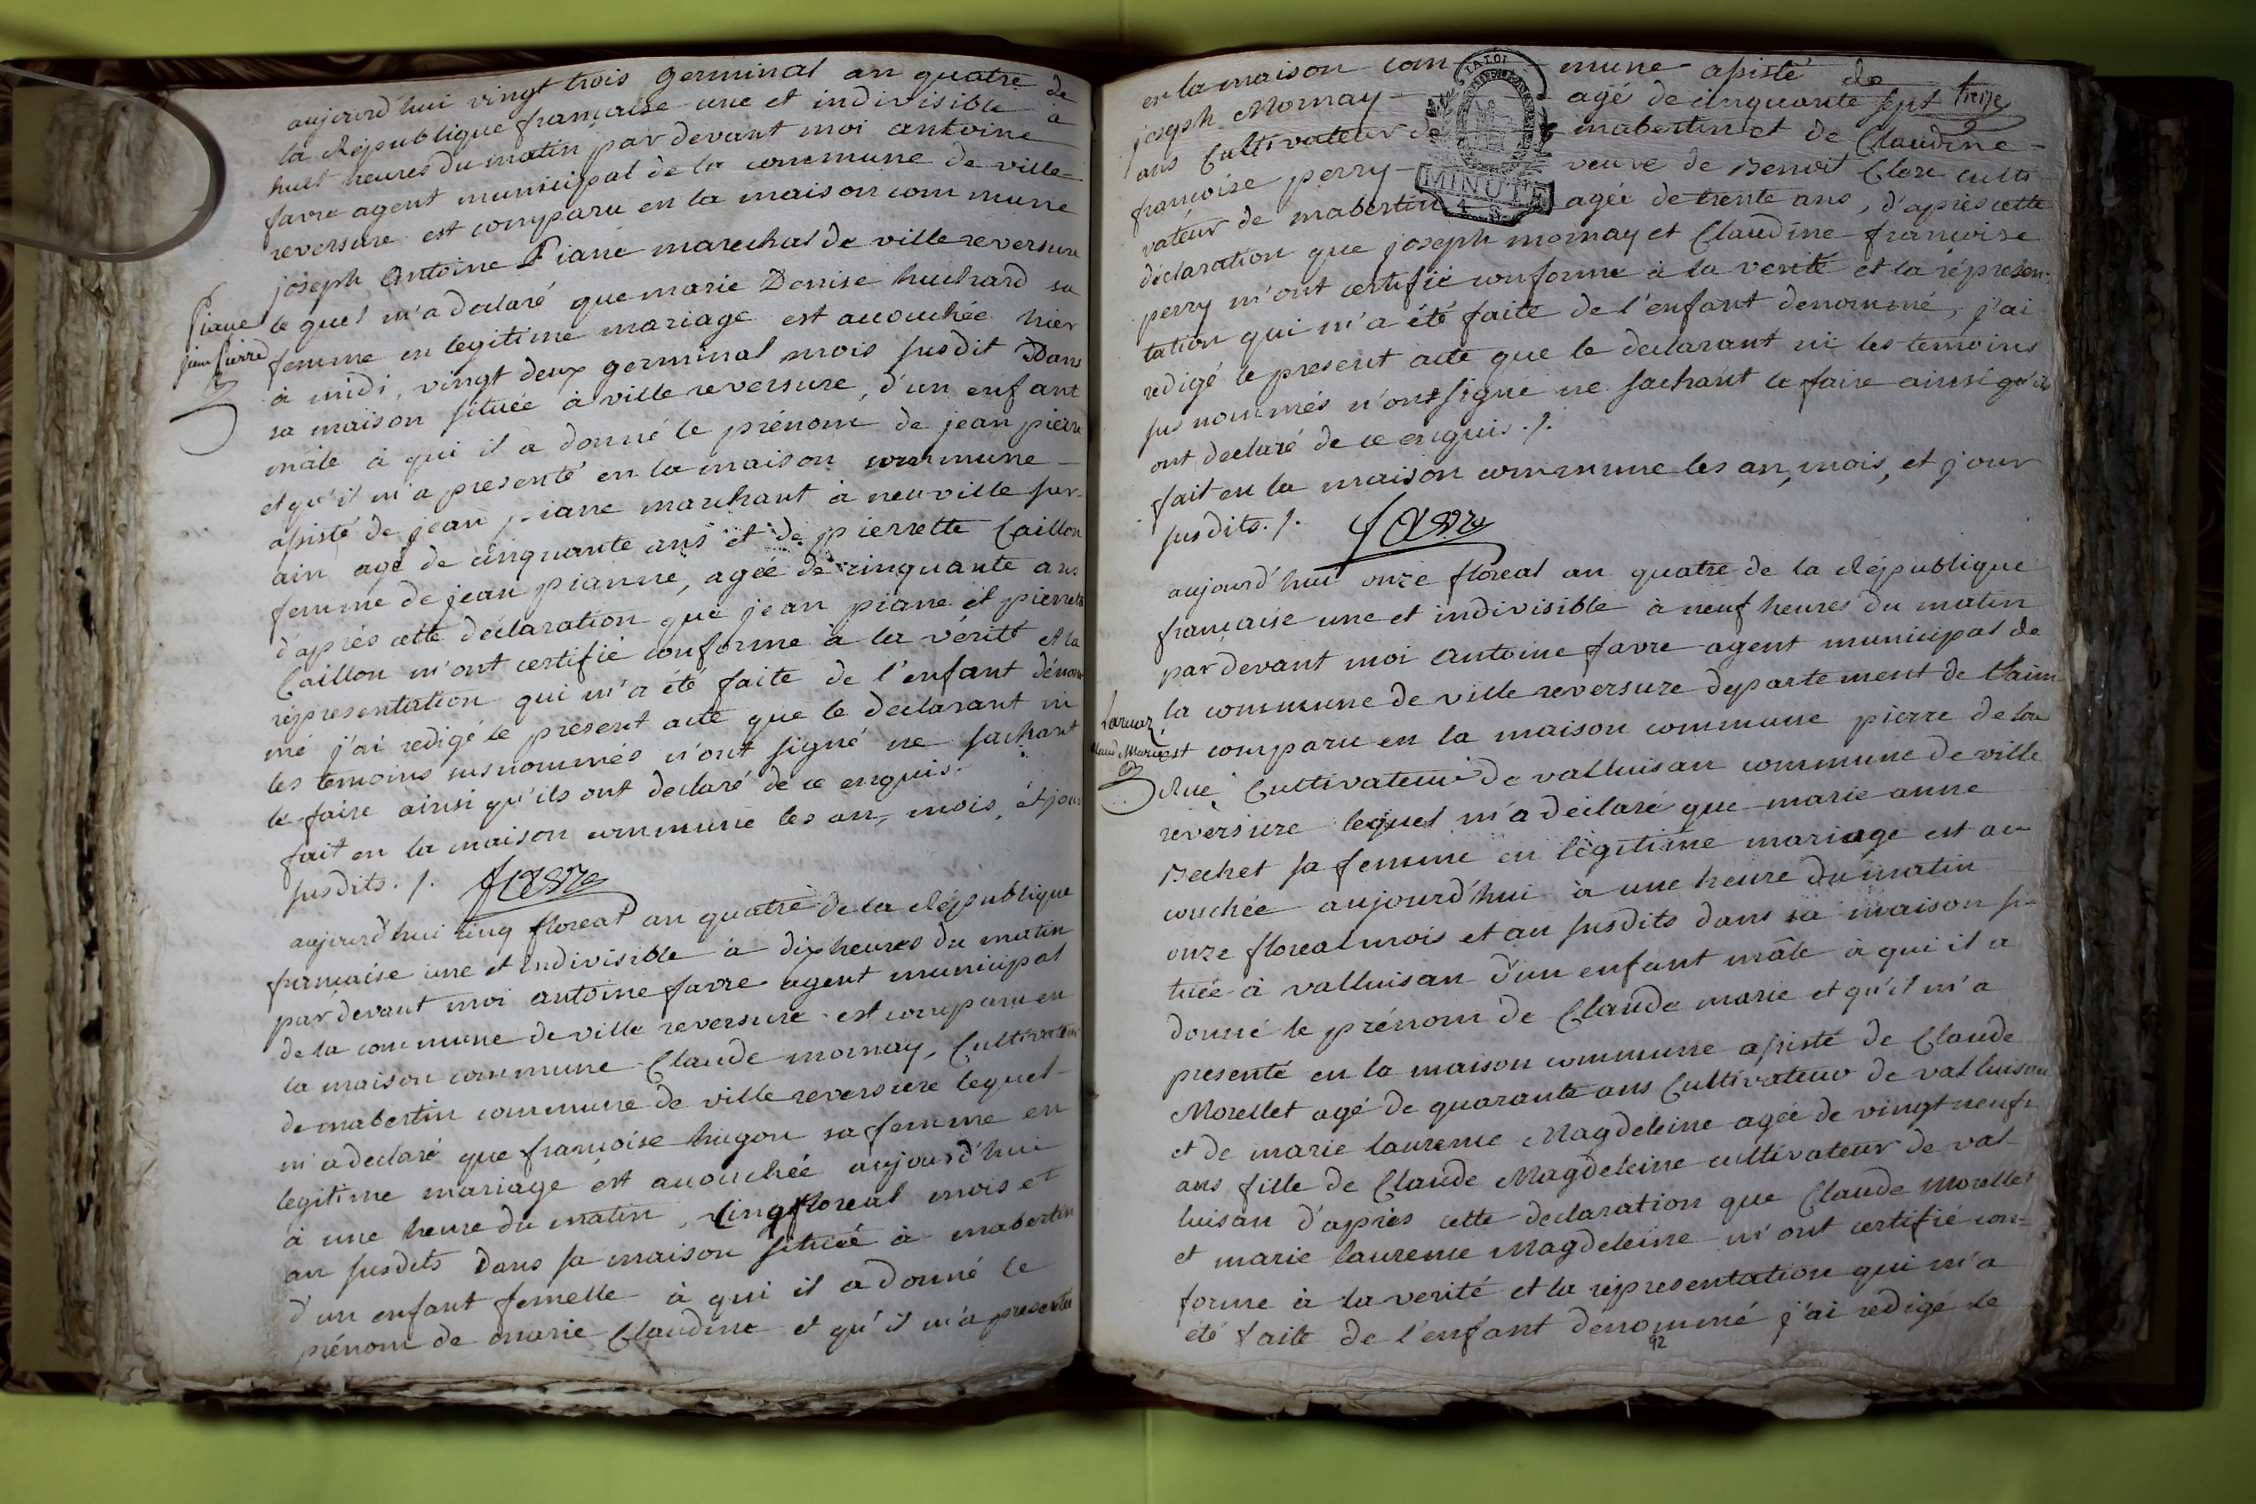 aujourd'hui vingt trois germinal an quatre de
la République française une et indivisible à
huit heures du matin par devant moi antoine
favre agent municipal de la commune de ville=
reversure est comparu en la maison commune
joseph Antoine Piane marechal de ville reversure
Piane
jean Pierre
le quel m'a declaré que marie Denise huchard sa
femme en legitime mariage est acouchée hier
à midi, vingt deux germinal mois susdit Dans
sa maison située à ville reversure, d'un enfant
mâle à qui il a donné le prénom de jean pierre
et qu'il m'a presenté en la maison commune
assisté de jean piane marchant à neuville sur
ain agé de cinquante ans et de pierrette Caillon
femme de jean pianne, agée de cinquante ans
d'après cette déclaration que jean piane et pierrette
Caillon m'ont certifié conforme à la vérité et la
répresentation qui m'a été faite de l'enfant dénom
mé j'ai redigé le present acte que le declarant ni
les temoins susnommés n'ont signé ne sachant
le faire ainsi qu'ils ont declaré de ce enquis.
fait en la maison commune les an, mois, et jour
susdits. /. favre
aujourd'hui cinq floreal an quatre de la République
française une et indivisible à dix heures du matin
par devant moi antoine favre agent municipal
de la commune de ville reversure est comparu en
la maison commune Claude mornay, Cultivateur
de mabertin commune de ville reversure lequel
m'a declaré que françoise hugon sa femme en
legitime mariage est acouchée aujourd'hui
à une heure du matin, Cinq floreal mois et
an susdits Dans sa maison située à mabertin
d'un enfant femelle à qui il a donné le
prénom de marie Claudine et qu'il m'a presenté
en la maison com mune assisté de
treize
joseph Mornay agé de cinquante sept
ans Cultivateur de mabertin et de Claudine
françoise perry veuve de Benoit Clere culti
vateur de mabertin agée de trente ans, d'après cette
déclaration que joseph mornay et Claudine françoise
perry m'ont certifié conforme à la verité et la répresen
tation qui m'a été faite de l'enfant denommé, j'ai
redigé le present acte que le declarant ni les temoins
sus nommés n'ont signé ne sachant le faire ainsi qu'ils
ont declaré de ce enquis. /.
fait en la maison commune les an, mois, et jour
susdits. /. favre
MINUTE
aujourd'hui onze floreal an quatre de la République
française une et indivisible à neuf heures du matin
par devant moi Antoine favre agent municipal de
la commune de ville reversure departement de l'ain
est comparu en la maison commune pierre de la
Rue, Cultivateur de valluisan commune de ville
reversure lequel m'a déclaré que marie anne
Bechet sa femme en légitime mariage est ac
couchée aujourd'hui à une heure du matin
onze floreal mois et an susdits dans sa maison si-
tuée à valluisan d'un enfant mâle à qui il a
donné le prénom de Claude marie et qu'il m'a
presenté en la maison commune assisté de Claude
Morellet agé de quarante ans Cultivateur de valluisan
et de marie laurence Magdeleine agée de vingt neuf
ans fille de Claude Magdeleine cultivateur de val
luisan d'après cette declaration que Claude Morellet
et marie laurence Magdeleine m'ont certifié con=
forme à la verité et la répresentation qui m'a
été faite de l'enfant denommé j'ai redigé le
92